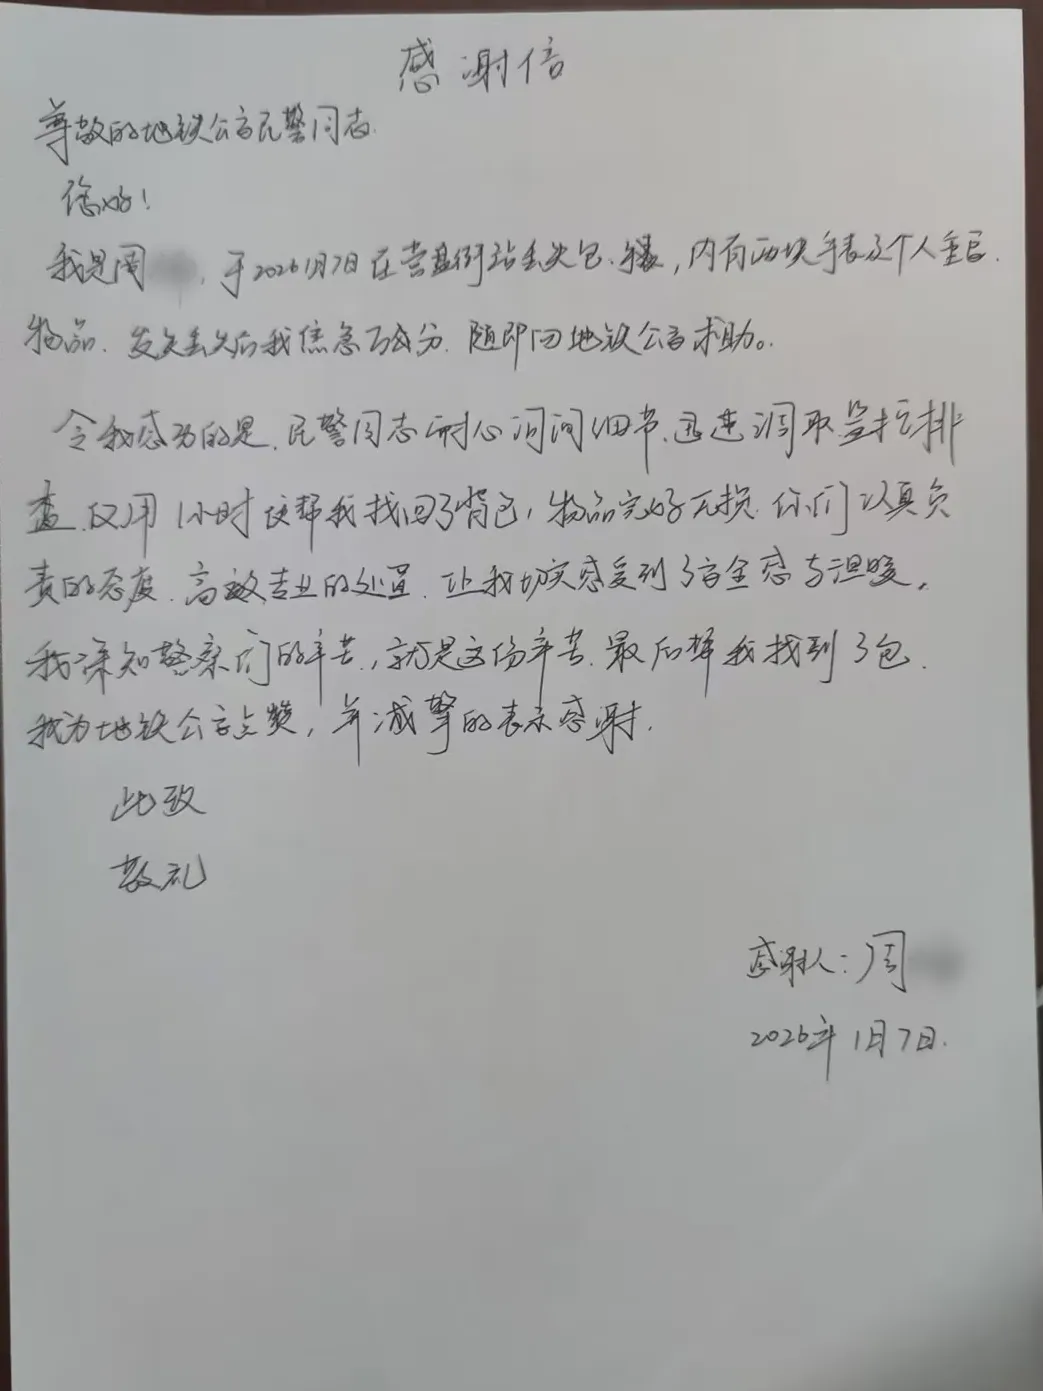 感谢信
尊敬的地铁公安民警同志
您好！
我是周 ，于2026年1月7日在营盘街站丢失包，内有两块手表及个人重要
物品，发觉丢失后我焦急万分，随即向地铁公安求助。
令我感动的是，民警同志耐心询问细节，迅速调取监控排
查，仅用1小时便帮我找回了背包，物品完好无损，你们认真负
责的态度，高效专业的处置，让我切实感受到了安全感与温暖，
我深知警察们的辛苦，就是这份辛苦，最后帮我找到了包，
我为地铁公安点赞，并诚挚的表示感谢。
此致
敬礼
感谢人：周
2026年1月7日.